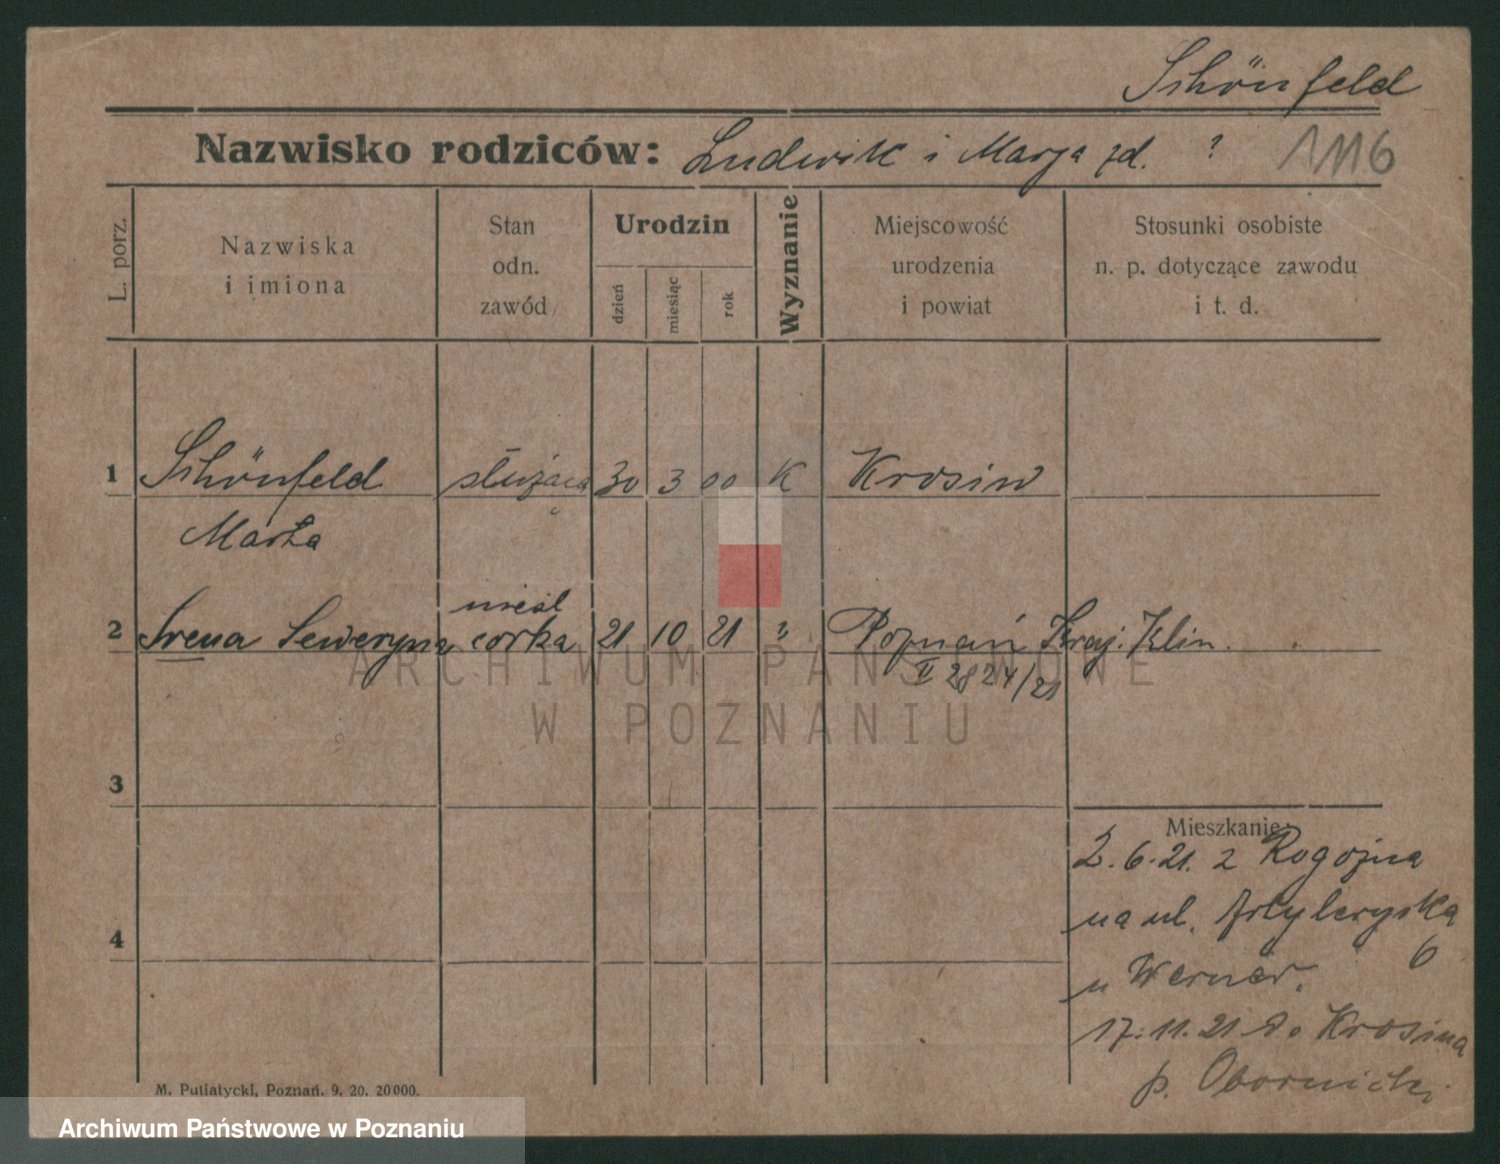 Schönfeld
Nazwisko rodziców: Ludwik i Marya zd. ? 1116
L. porz.
Nazwiska
i imiona
Stan
odn.
zawód
Urodzin
dzień
miesiąc
rok
Wyznanie
Miejscowość
urodzenia
i powiat
Stosunki osobiste
n. p. dotyczące zawodu
i t. d.
1 Schönfeld służąca 30 3 00 K Krosin
Marta
nieśl
2 Irena Seweryna córka 21 10 21 " Poznań Kraj. Klin.
II 2824/21
ARCHIWUM PAŃSTWOWE
W POZNANIU
3
Mieszkanie:
2.6.21. z Rogoźna
na ul. Artyleryska
6
u Werner.
17.11.21 do Krosina
p. Obornicki
4
M. Putiatycki, Poznań. 9. 20. 20000.
Archiwum Państwowe w Poznaniu